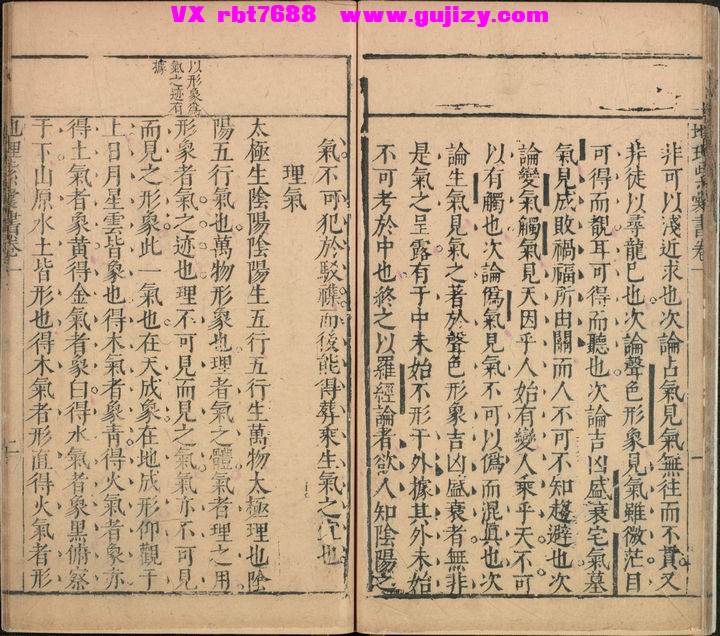 VX rbt7688 www.gujizy.com
非可以淺近求也次論占氣見氣無往而不貫又
非徒以尋龍已也次論聲色形象見氣雖微茫目
可得而覩耳可得而聽也次論吉凶盛衰宅氣墓
氣見成敗禍福所由關而人不可不知趨避也次
論變氣觸氣見天因乎人始有變人乘乎天不可
以有觸也次論僞氣見氣不可以僞而混眞也次
論生氣見氣之著於聲色形象吉凶盛衰者無非
是氣之呈露有于中未始不形于外據其外未始
不可考於中也終之以羅經論者欲人知陰陽之
氣不可犯於駁襍而後能得葬乘生氣之宜也
理氣
太極生陰陽陰陽生五行五行生萬物太極理也陰
陽五行氣也萬物形象也理者氣之體氣者理之用
形象者氣之迹也理不可見而見之氣氣亦不可見
而見之形象此一氣也在天成象在地成形仰觀于
上日月星雲皆象也得木氣者象青得火氣者象赤
得土氣者象黃得金氣者象白得水氣者象黑俯察
于下山原水土皆形也得木氣者形直得火氣者形
以形象爲
氣之迹有
據